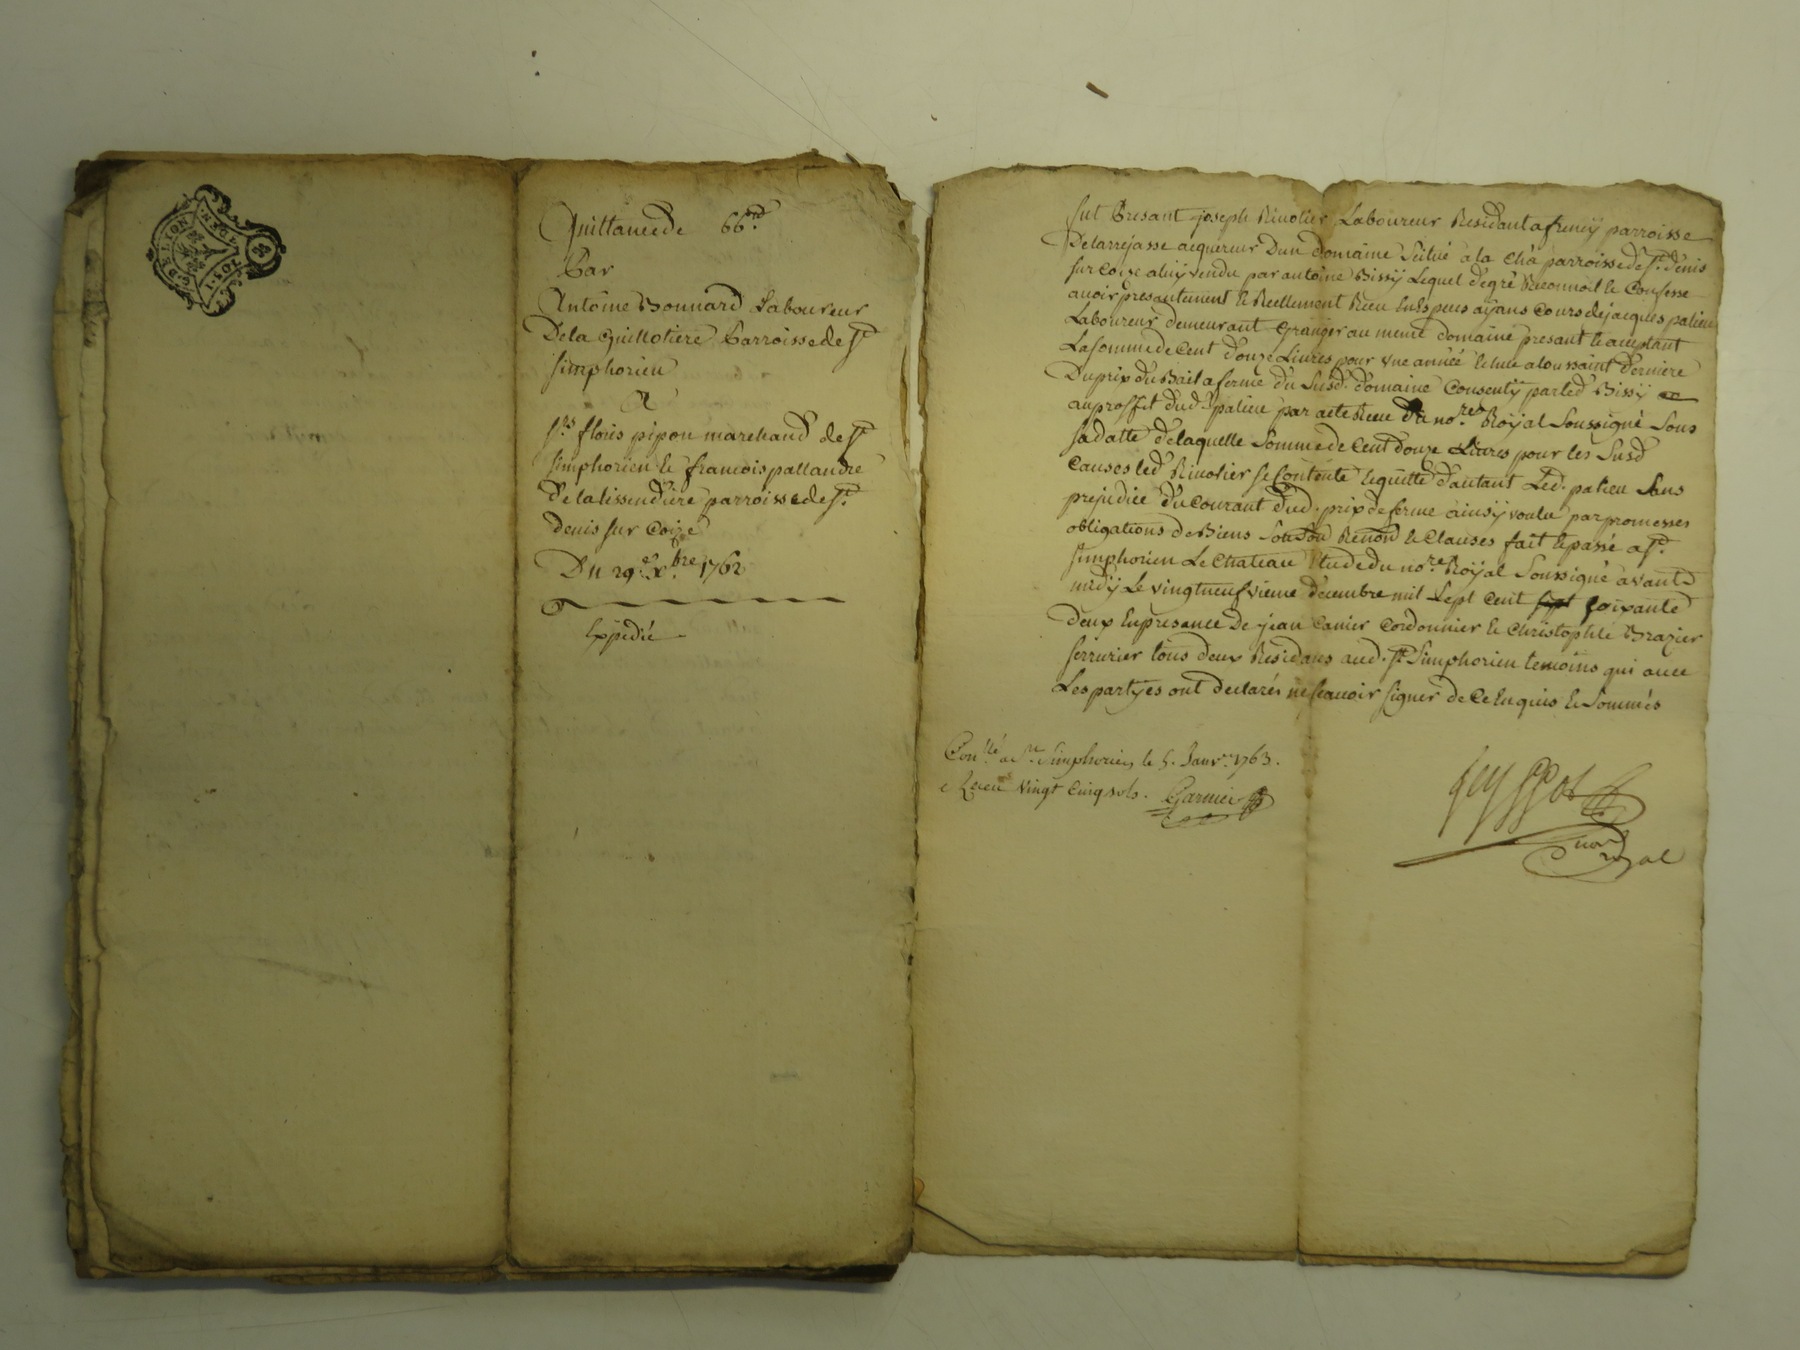 G. DE LION
Quittance de 66 ₶
Par
Antoine Bonnard Laboureur
De la Guillotiere Parroisse de St
simphorien
A
Srs floris pipon marchand de St
simphorien & francois pallandre
De la lissendiere parroisse de St
denis sur Coize
Du 29e xbre 1762
Expedié
fut Presant joseph Rivolier Laboureur Residant a freney parroisse
De larrajasse acquereur Dun domaine scitué a la Cha parroisse de St denis
sur Coize a luy vendu par antoine Bissÿ Lequel de gré Reconnoit & Confesse
avoir presantement & Reellement Receu En Especes aÿans Cours de jacques palieu
Laboureur demeurant Granger au meme domaine presant & acceptant
La somme de Cent douze Livres pour une année Echue a toussaint derniere
Du prix du Bail a ferme du susd. domaine Consentÿ par led Bissÿ
au proffit dud palieu par acte Receu du nore Roÿal soussigné sous
sa datte de laquelle somme de Cent douze Livres pour les susd
Causes led Rivolier se Contente & quitte d'autant Led. palieu sans
prejudice du Courant dud. prix de ferme ainsÿ voulu par promesses
obligations de Biens Renond & Clauses fait & passé a St
simphorien Le Chateau Etude du nore Roÿal soussigné avant
midÿ Le vingtneufvieme decembre mil sept cent soixante
deux En presance de jean Canier Cordonnier & Christophle Brazier
serrurier tous deux Residans aud. St simphorien temoins qui avec
Les partÿes ont declarés ne scavoir signer de Ce Enquis & sommés
Conllé a St. Simphorien le 5. Janvr 1763.
Receu vingt Cinq sols. Garnier
not royal